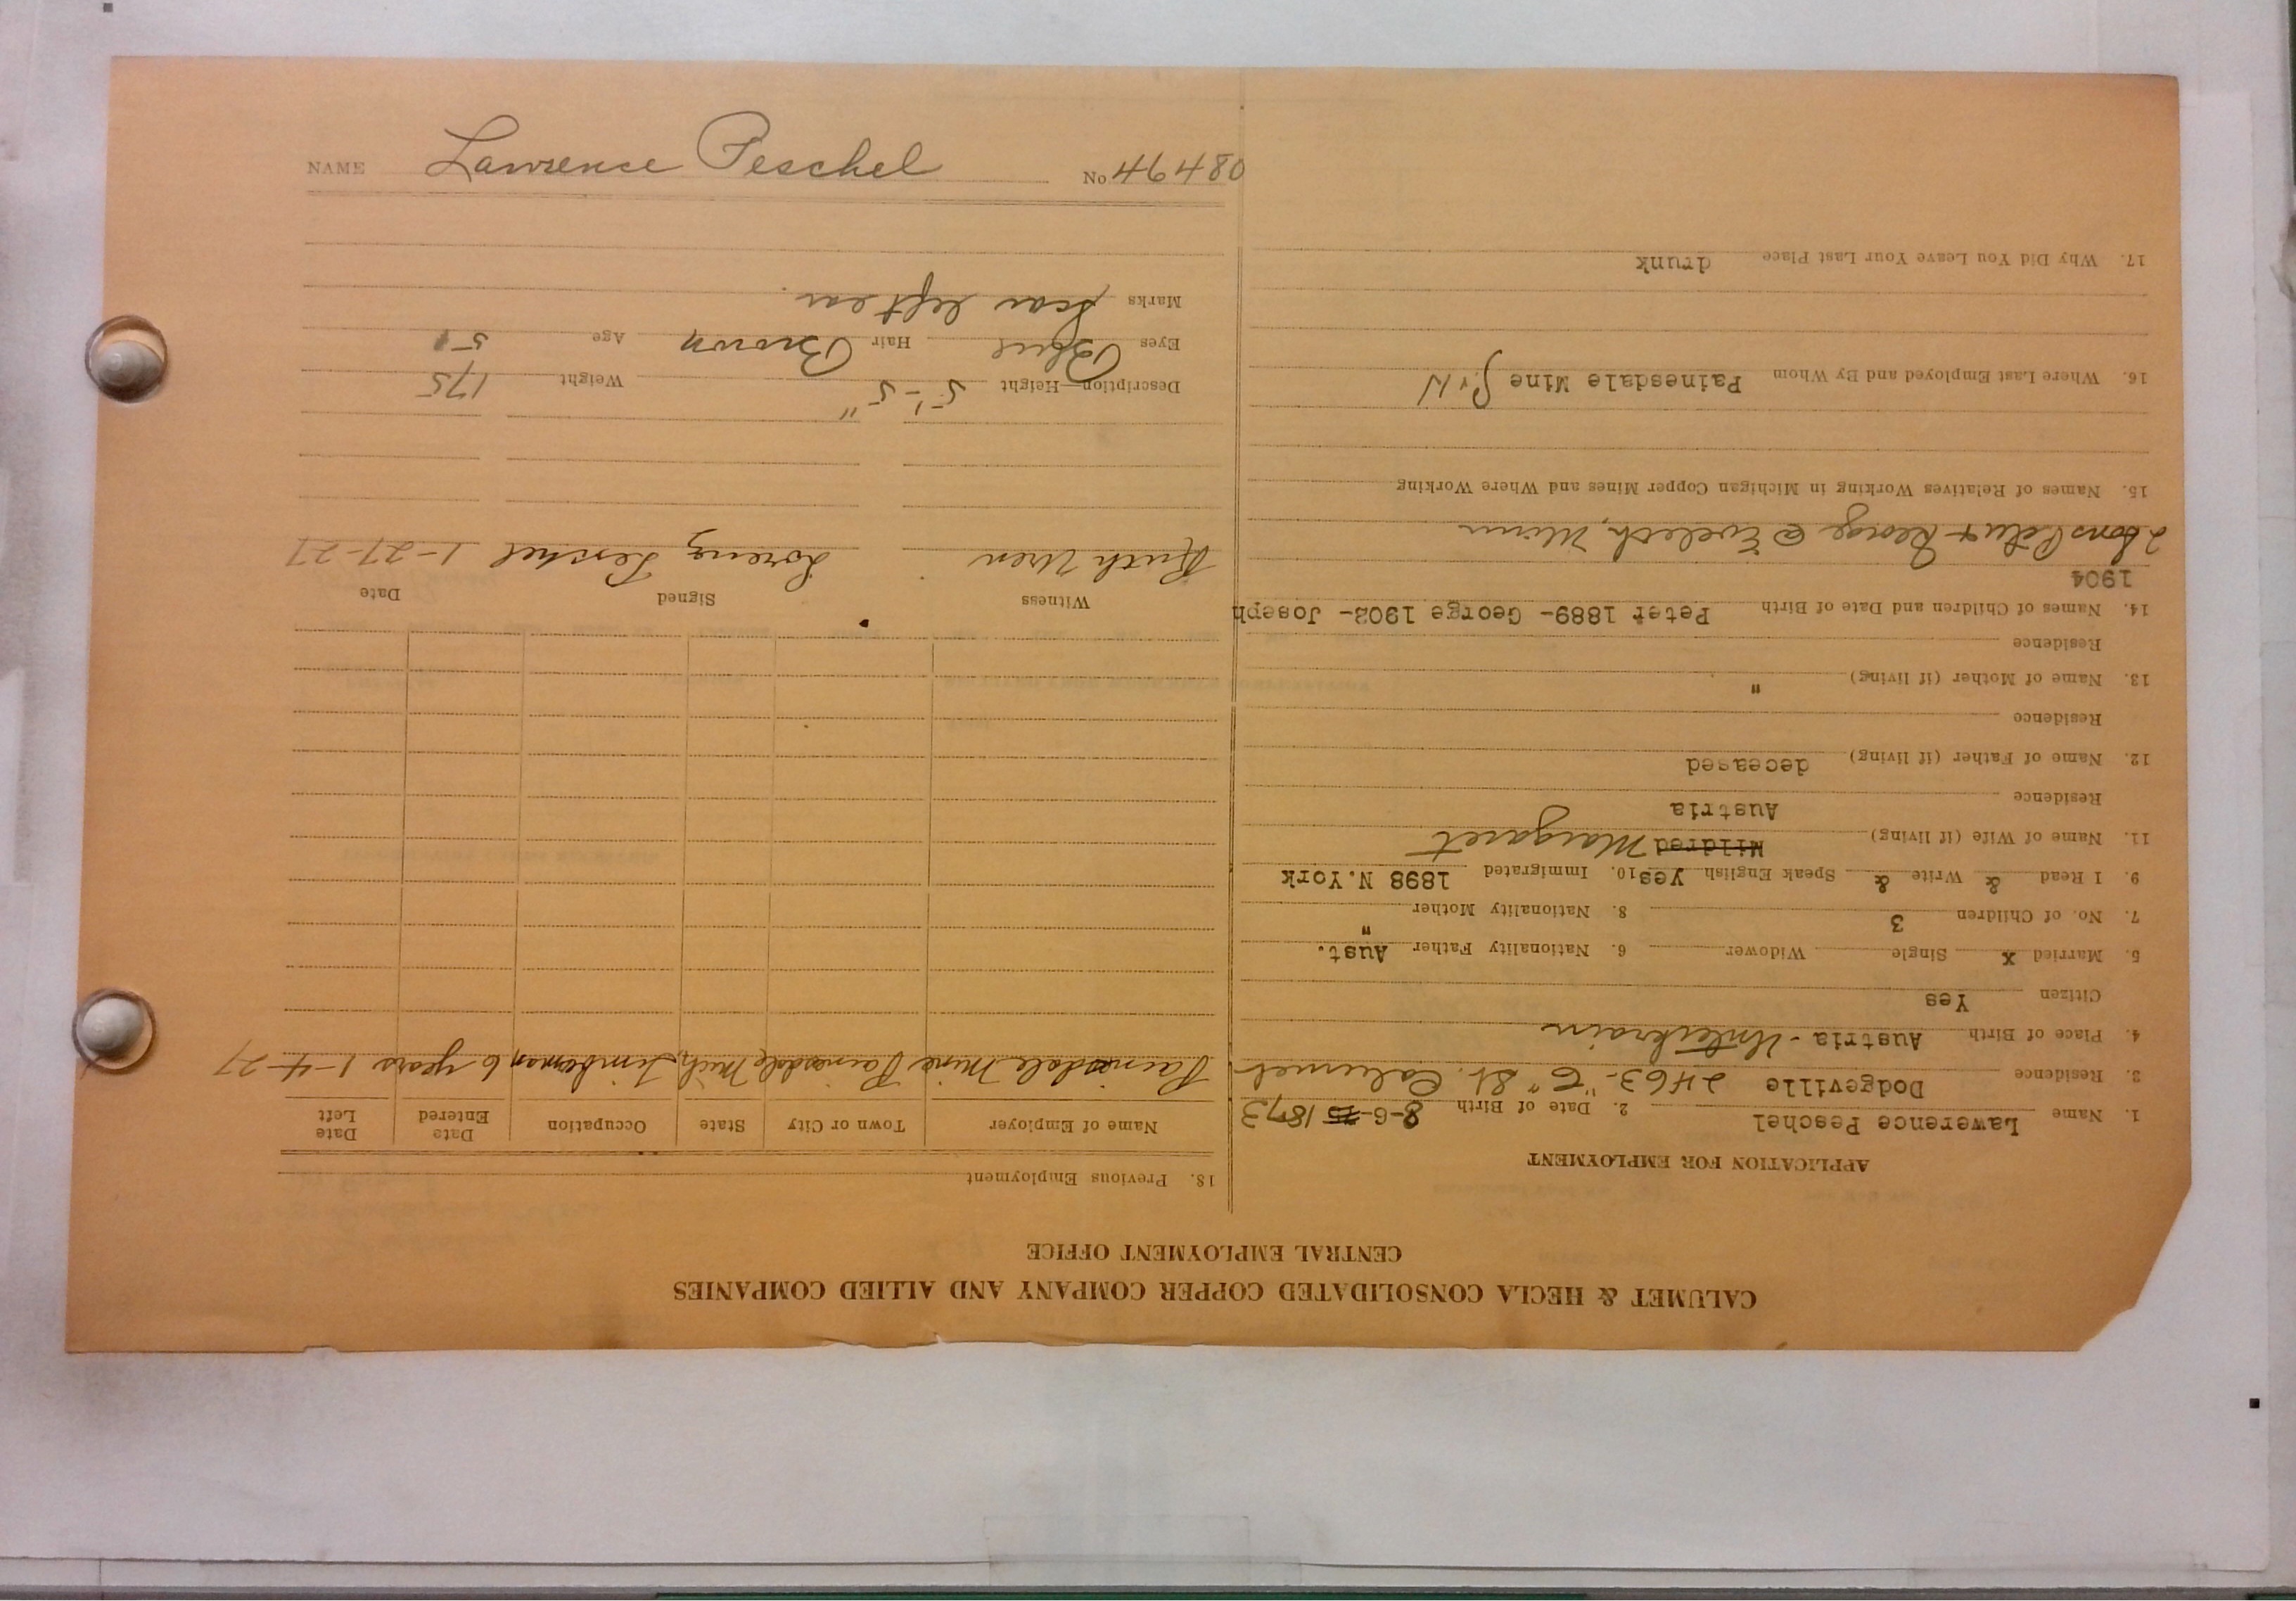 NAME Lawrence Peschel No 46480
CALUMET & HECLA CONSOLIDATED COPPER COMPANY AND ALLIED COMPANIES
CENTRAL EMPLOYMENT OFFICE
APPLICATION FOR EMPLOYMENT
1. Name Lawerence Peschel 2. Date of Birth 8-6-75 1873
3. Residence Dodgeville 2463-"C" St. Calumet
4. Place of Birth Austria - Unterkrain
Citizen Yes
5. Married x Single Widower 6. Nationality Father Aust.
7. No. of Children 3 8. Nationality Mother "
9. I Read & Write & Speak English Yes 10. Immigrated 1898 N.York
11. Name of Wife (if living) Mildred Margaret
Residence Austria
12. Name of Father (if living) deceased
Residence
13. Name of Mother (if living) "
Residence
14. Names of Children and Date of Birth Peter 1889- George 1902- Joseph
1904
2 sons Peter + George @ Eveleth, Minn
15. Names of Relatives Working in Michigan Copper Mines and Where Working
16. Where Last Employed and By Whom Painesdale Mine
17. Why Did You Leave Your Last Place drunk
18. Previous Employment
Name of Employer Town or City State Occupation Date Entered Date Left
Painesdale Mine Painesdale Mich, Timberman 6 years 1-4-27
Witness Signed Date
Ruth Uren Lorenz Peschel 1-27-27
Description—Height 5'-5" Weight 175
Eyes Blue Hair Brown Age 51
Marks scar left ear.